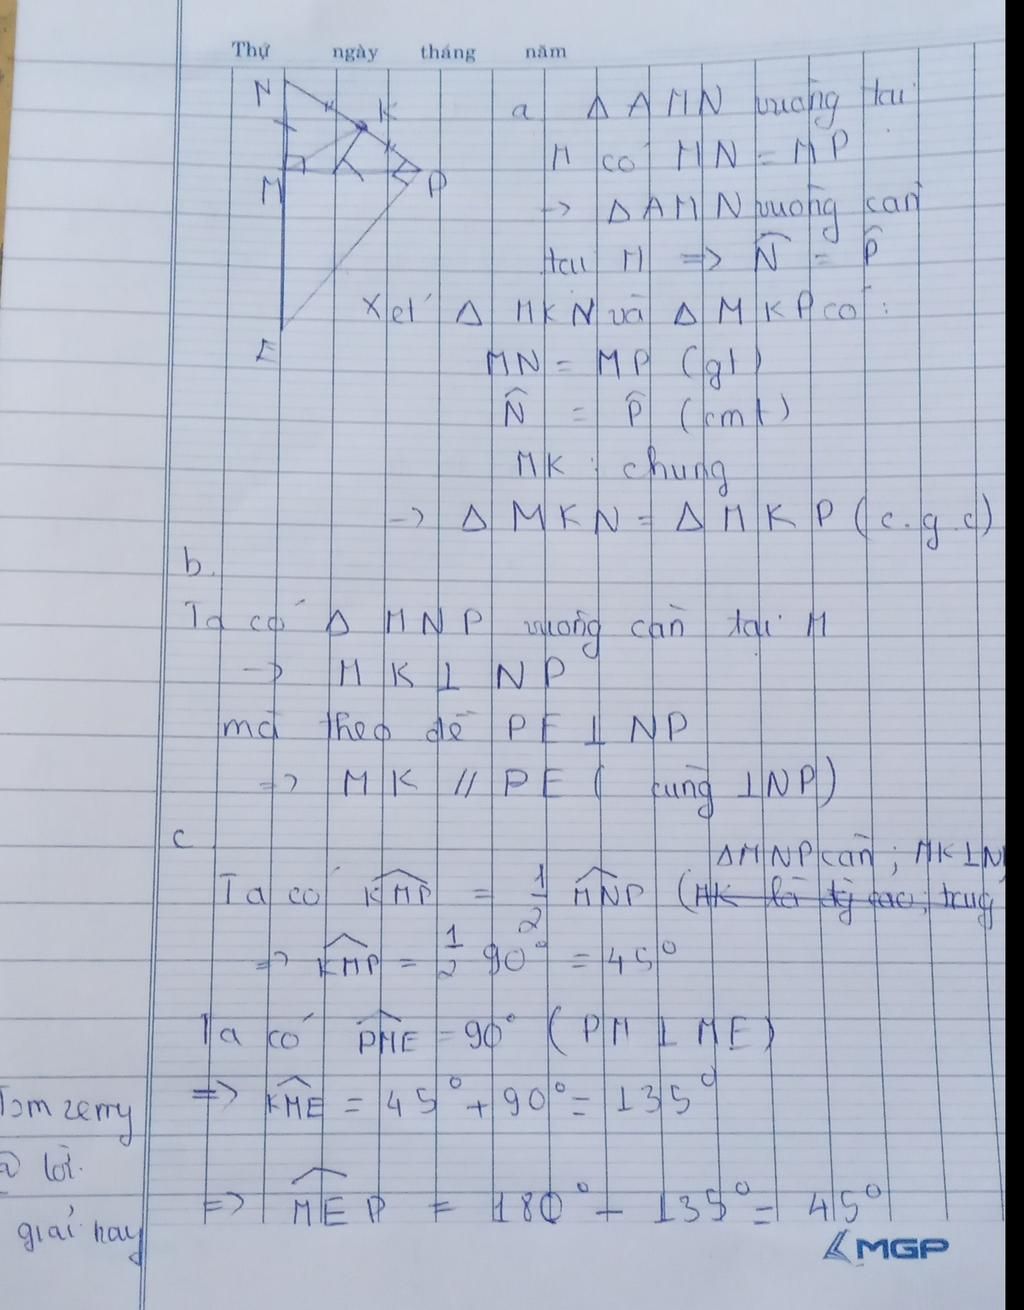 Thứ ngày tháng năm
N
K
M
P
E
a Δ AMN vuông tại
M có MN = MP
-> Δ AMN vuông cân
tại M => N̂ = P̂
Xét Δ MKN và Δ MKP có :
MN = MP (gt)
N̂ = P̂ (cmt)
MK : chung
-> Δ MKN = Δ MKP (c.g.c)
b.
Ta có Δ MNP vuông cân tại M
-> MK ⊥ NP
mà theo đề PE ⊥ NP
=> MK // PE ( cùng ⊥ NP)
c
ΔMNP cân ; MK⊥N
Ta có KMP = 1/2 MNP (MK là
=> KMP = 1/2 90° = 45°
Ta có PME = 90° ( PM ⊥ ME)
=> KME = 45° + 90° = 135°
=> MEP = 180° - 135° = 45°
Tom zerry
lời.
giải hay
MGP